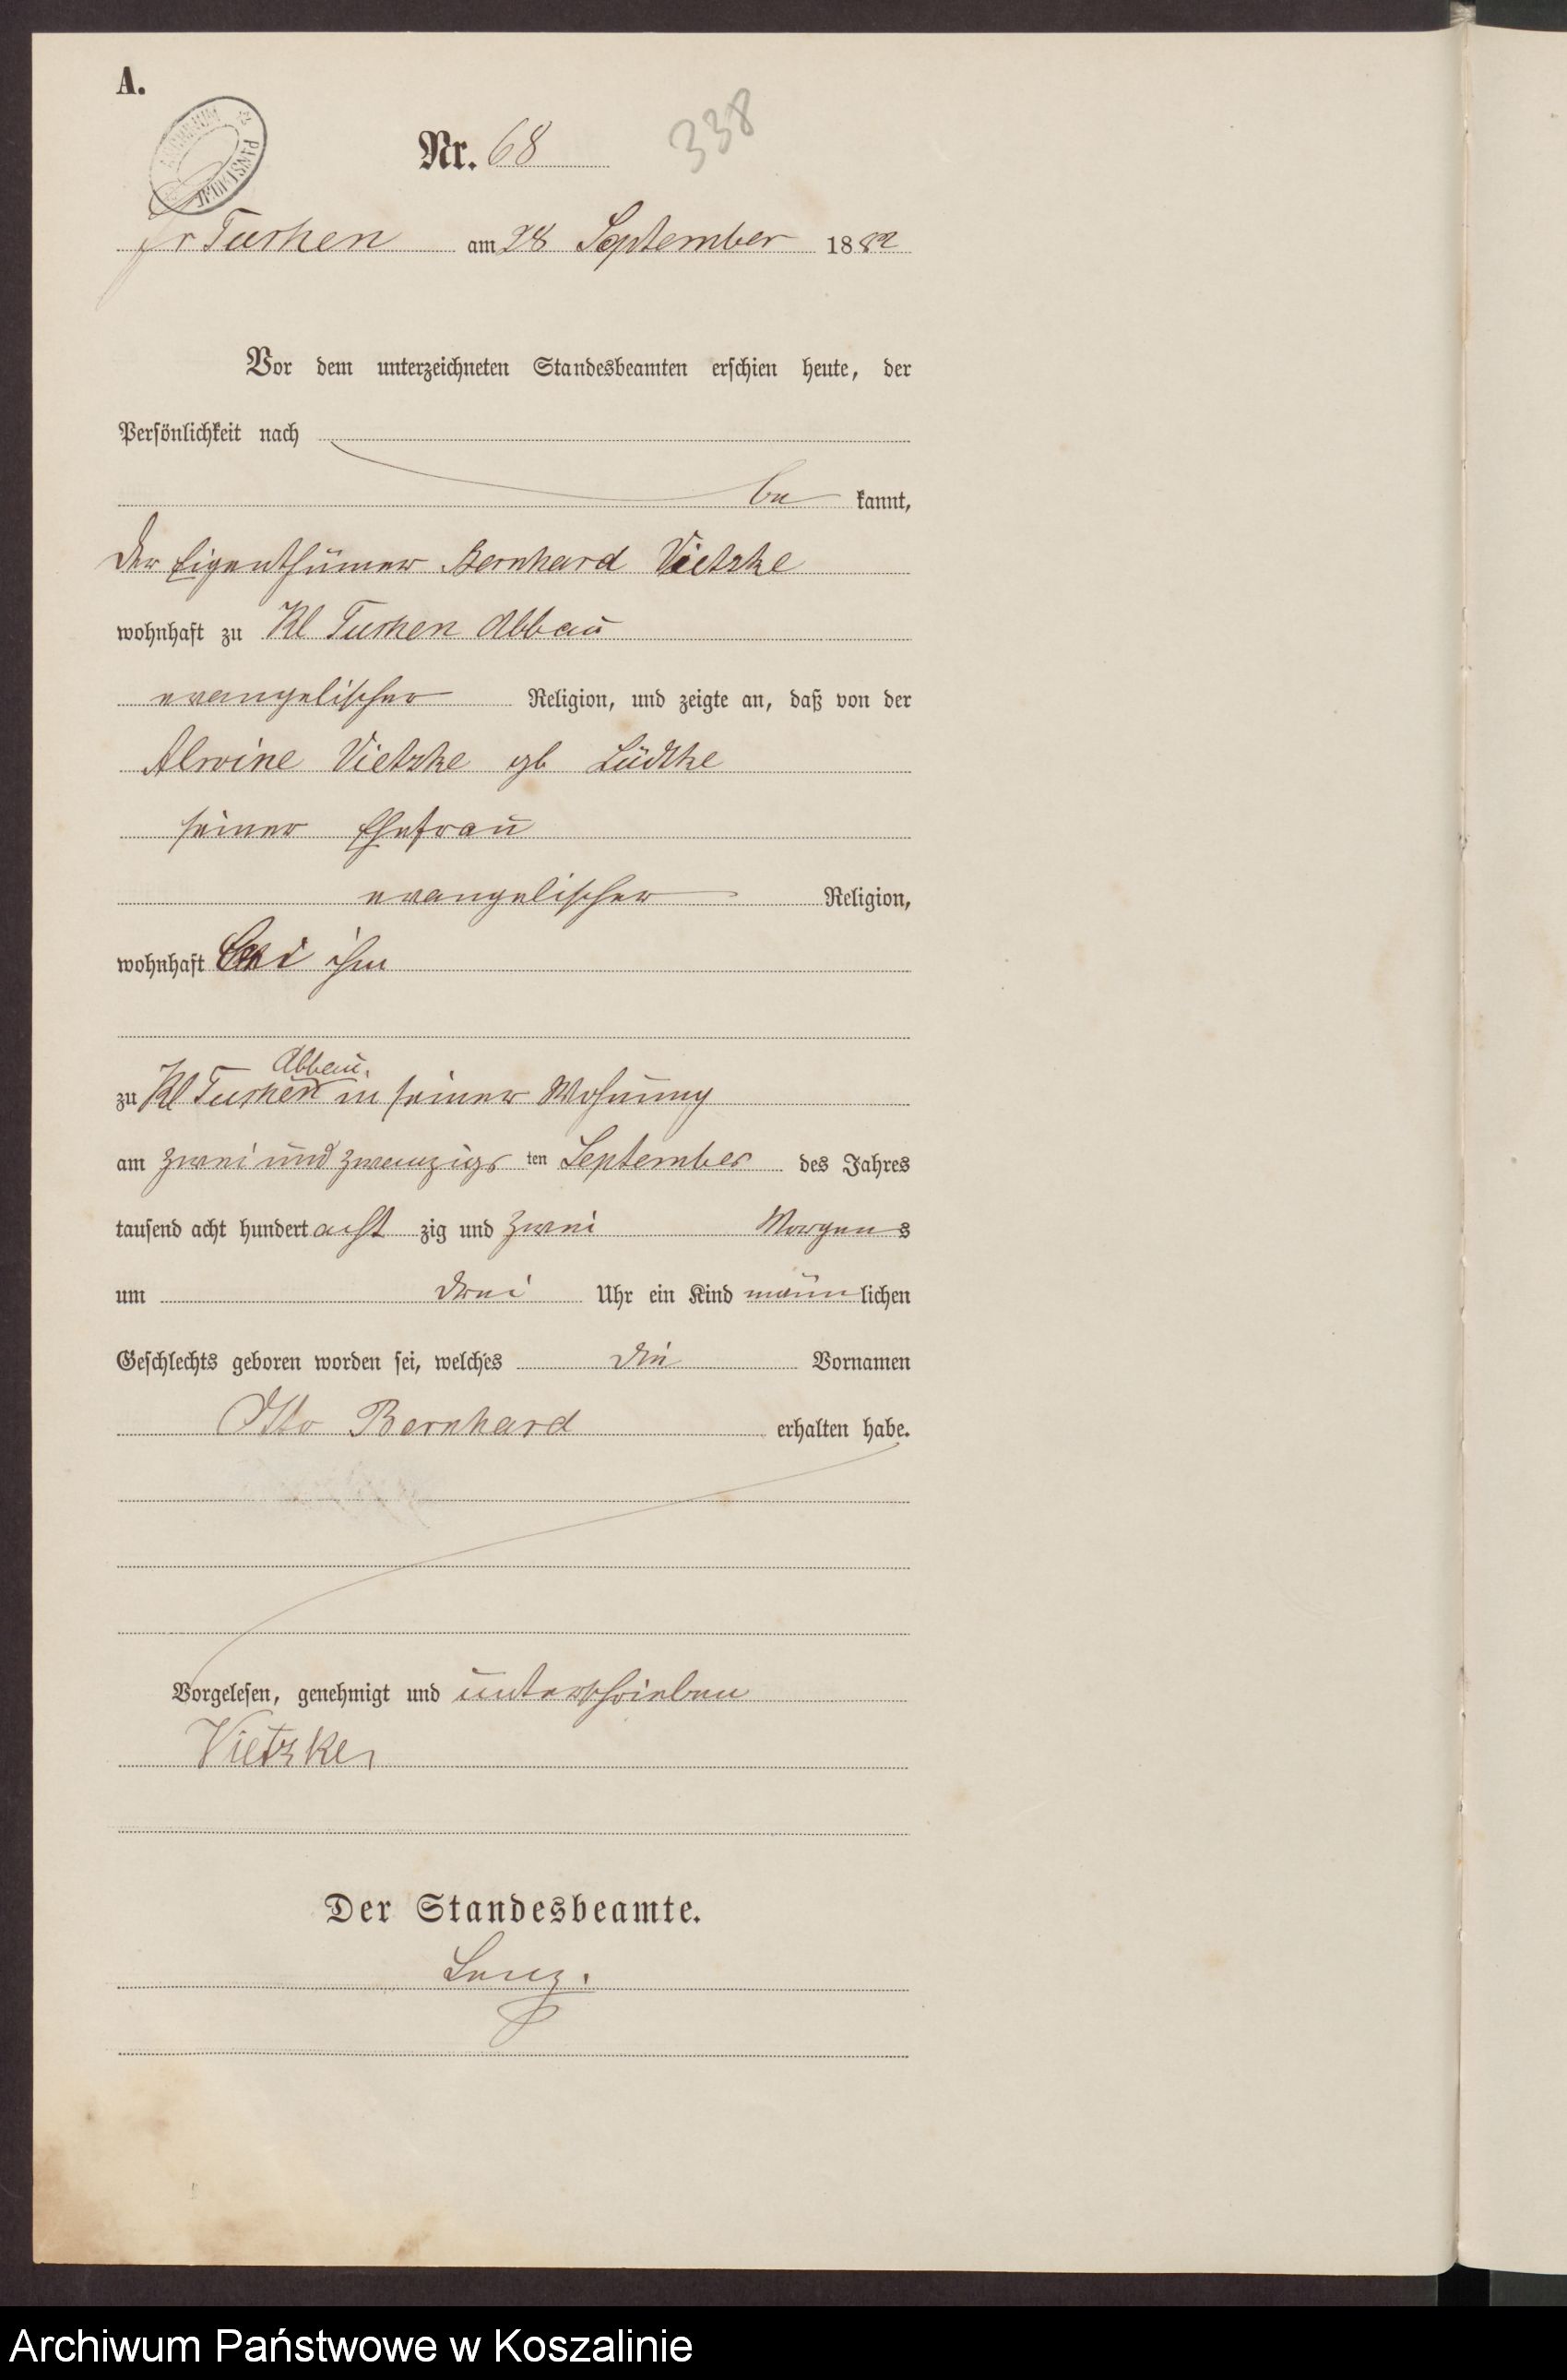 A.
ARCHIWUM PAŃSTWOWE
Nr. 68
338
Gr Tuchen am 28 September 1882
Vor dem unterzeichneten Standesbeamten erschien heute, der
Persönlichkeit nach
be kannt,
der Eigenthümer Bernhard Vietzke
wohnhaft zu Kl Tuchen Abbau
evangelischer Religion, und zeigte an, daß von der
Alwine Vietzke gb Lüdtke
seiner Ehefrau
evangelischer Religion,
wohnhaft bei ihm
Abbau.
zu Kl Tuchen in seiner Wohnung
am zwei und zwanzigs ten September des Jahres
tausend acht hundert acht zig und zwei Morgens
um drei Uhr ein Kind männlichen
Geschlechts geboren worden sei, welches die Vornamen
Otto Bernhard erhalten habe.
Vorgelesen, genehmigt und unterschrieben
Vietzke
Der Standesbeamte.
Archiwum Państwowe w Koszalinie